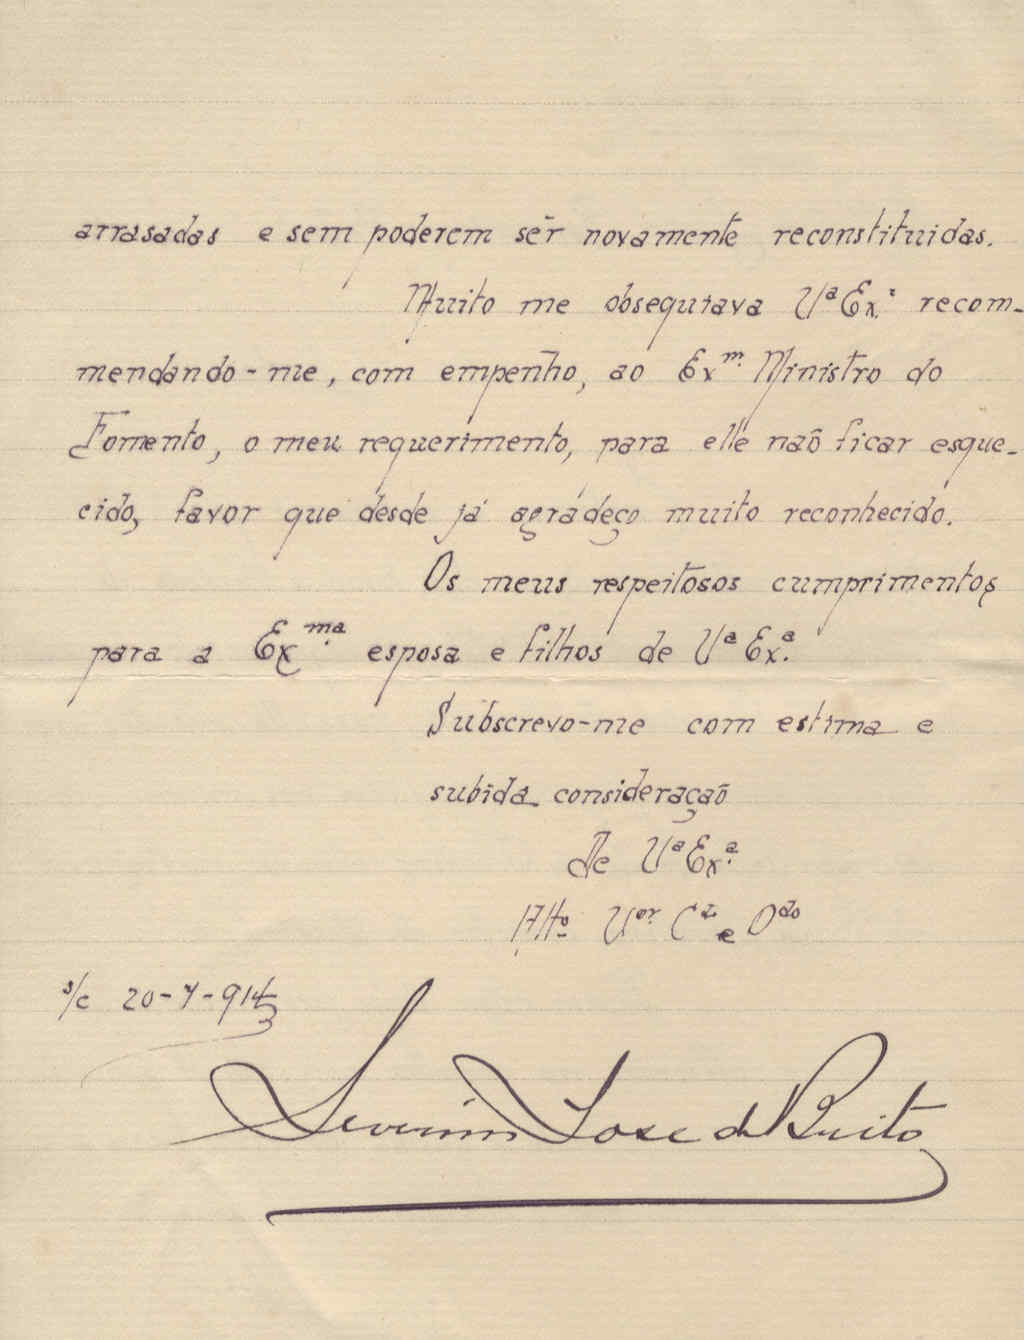 arrasadas e sem poderem sêr novamente reconstituidas.
Muito me obsequiava Vª Exª recom-
mendando-me, com empenho, ao Exm. Ministro do
Fomento, o meu requerimento, para elle naõ ficar esque-
cido, favor que desde já agradeço muito reconhecido.
Os meus respeitosos cumprimentos
para a Exma. esposa e filhos de Vª Exª.
Subscrevo-me com estima e
subida consideraçaõ
De Vª Exª.
Atto Vor Cr e Odo
s/c 20-7-914
Severino José de Brito